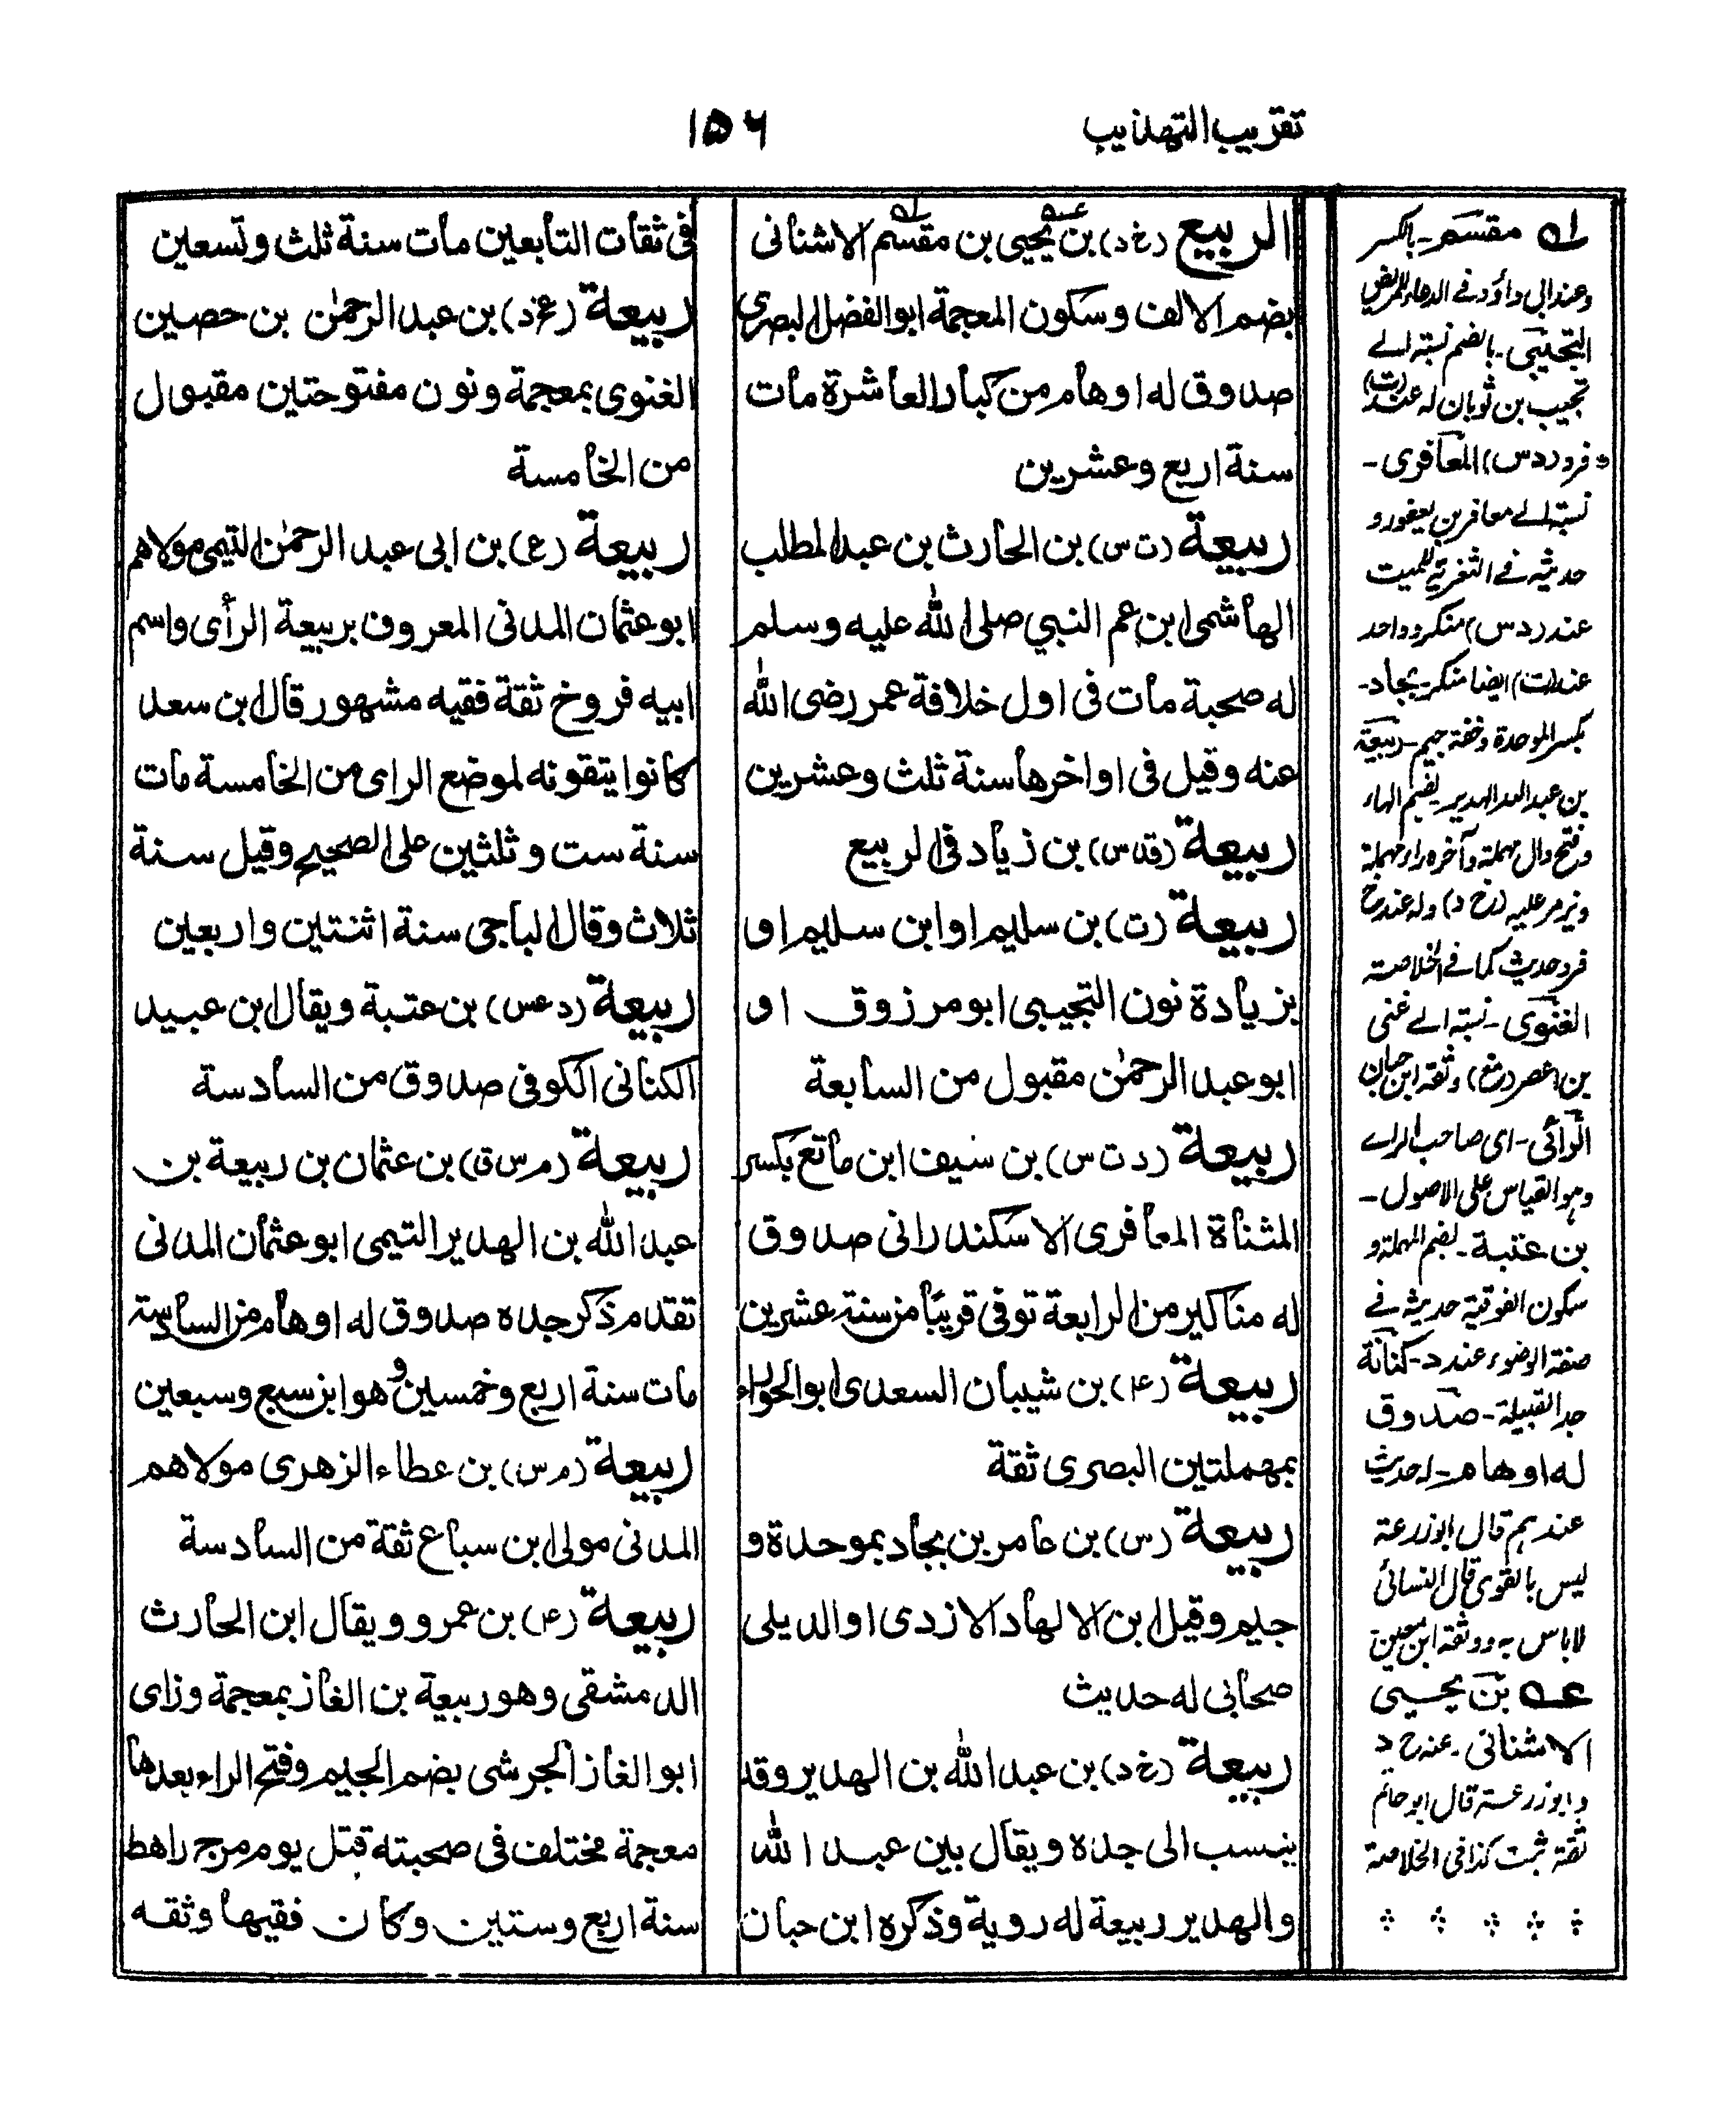 تقريب التهذيب
١٥٦
الربيع (خ د) بن يحيى بن مقسم الاشنانى
بضم الالف وسكون المعجمة ابوالفضل البصرى
صدوق له اوهام من كبار العاشرة مات
سنة اربع وعشرين
ربيعة (ت س) بن الحارث بن عبد المطلب
الهاشمى ابن عم النبي صلى الله عليه وسلم
له صحبة مات فى اول خلافة عمر رضى الله
عنه وقيل فى اواخرها سنة ثلث وعشرين
ربيعة (قد س) بن زياد فى الربيع
ربيعة (ت) بن سليم او ابن سليم او
بزيادة نون التجيبى ابو مرزوق او
ابو عبد الرحمٰن مقبول من السابعة
ربيعة (د ت س) بن سنيف ابن ماتع بكسر
المثناة المعافرى الاسكندرانى صدوق
له مناكير من الرابعة توفى قريبا من سنة عشرين
ربيعة (٤) بن شيبان السعدى ابو الحوراء
بمهملتين البصرى ثقة
ربيعة (س) بن عامر بن بجاد بموحدة و
جيم وقيل ابن الالهاد الازدى او الديلى
صحابى له حديث
ربيعة (خ د) بن عبد الله بن الهدير وقد
ينسب الى جده ويقال بين عبد الله
والهدير ربيعة له روية وذكره ابن حبان
فى ثقات التابعين مات سنة ثلث وتسعين
ربيعة (عخ د) بن عبد الرحمٰن بن حصين
الغنوى بمعجمة ونون مفتوحتين مقبول
من الخامسة
ربيعة (ع) بن ابى عبد الرحمٰن التيمى مولاهم
ابو عثمان المدنى المعروف بربيعة الرأى واسم
ابيه فروخ ثقة فقيه مشهور قال ابن سعد
كانوا يتقونه لموضع الراى من الخامسة مات
سنة ست وثلثين على الصحيح وقيل سنة
ثلاث وقال الباجى سنة اثنتين واربعين
ربيعة (د عس) بن عتبة ويقال ابن عبيد
الكنانى الكوفى صدوق من السادسة
ربيعة (م س ق) بن عثمان بن ربيعة بن
عبد الله بن الهدير التيمى ابو عثمان المدنى
تقدم ذكر جده صدوق له اوهام من السادسة
مات سنة اربع وخمسين وهو ابن سبع وسبعين
ربيعة (م س) بن عطاء الزهرى مولاهم
المدنى مولى ابن سباع ثقة من السادسة
ربيعة (٤) بن عمرو ويقال ابن الحارث
الدمشقى وهو ربيعة بن الغاز بمعجمة وزاى
ابو الغاز الجرشى بضم الجيم وفتح الراء بعدها
معجمة مختلف فى صحبته قتل يوم مرج راهط
سنة اربع وستين وكان فقيها وثقه
له مقسم ـ بالكسر
وعند ابى داؤد فى الدعاء للمريض
التجيبى ـ بالضم نسبته الے
تجيب بن ثوبان له عند (ت)
فرد (د س) المعافرى ـ
نسبته الے معافر بن يعفور و
حديثه فے التعزية للميت
عند (د س) منكر وواحد
عند (ت) ايضا منكر ـ بجاد ـ
بكسر الموحدة وخفة جيم ـ ربيعة
بن عبد الله الهدير بضم الهاء
وفتح دال مهملة وآخره راء مهملة
ويرمز عليه (خ د) وله عند خ
فرد حديث كما فے الخلاصة
الغنوى ـ نسبته الے غنى
بن اعصر (عخ) وثقه ابن حبان
الرأئى ـ اى صاحب الراے
وهو القياس على الاصول ـ
بن عتبة ـ بضم المهملة و
سكون الفوقية حديثه فے
صفة الوضوء عند د ـ كنانة
جد القبيلة ـ صدوق
له اوهام ـ له حديث
عندهم قال ابوزرعة
ليس بالقوى قال النسائى
لا باس به ووثقه ابن معين
عه بن يحيى
الاشنانى ـ عنه خ د
وابوزرعة قال ابوحاتم
ثقة ثبت كذا فى الخلاصة